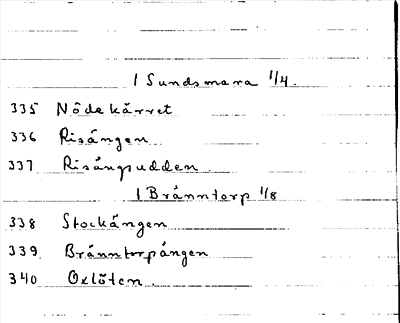 1 Sundsmara 1/4.
335 Nödekärret
336 Risängen
337 Risängsudden
1 Bränntorp 1/8
338 Stockängen
339 Bränntorpängen
340 Oxlöten